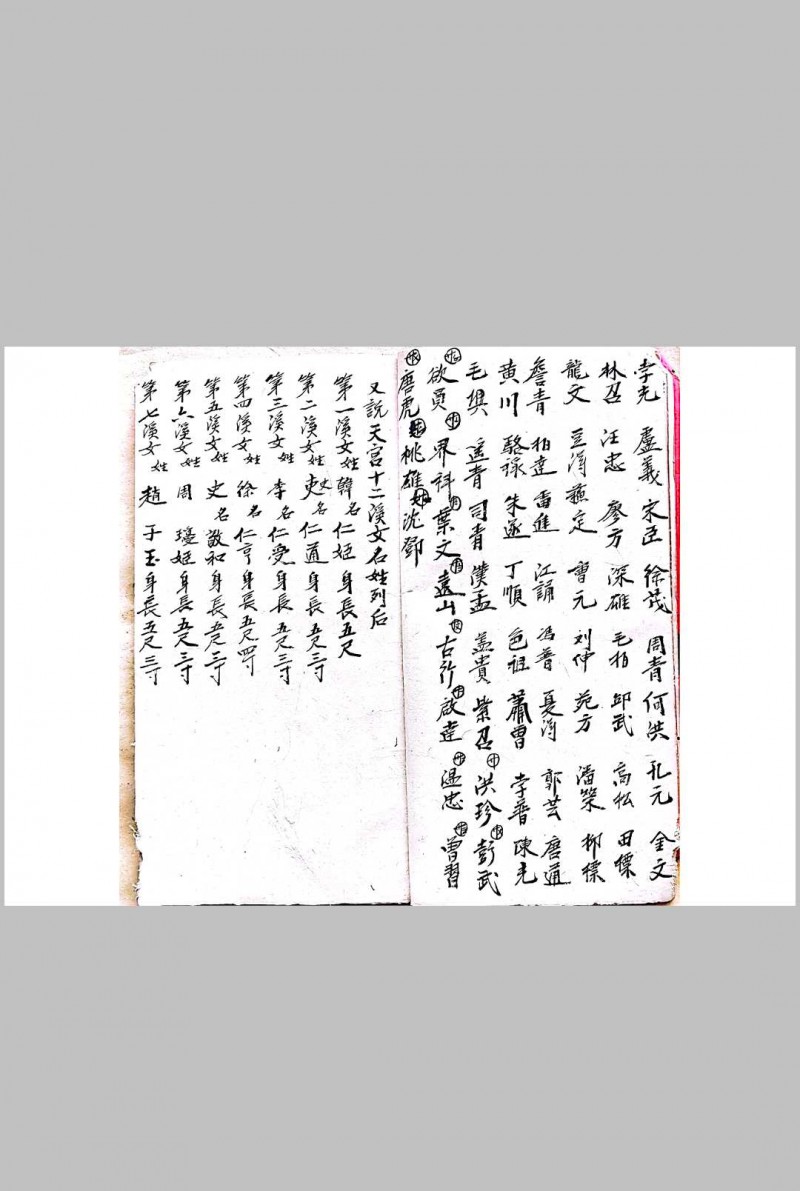 李光 盧義 宋臣 徐茂 周青 何洪 孔元 金文
林召 汪忠 廖方 深雄 毛柏 邱武 高松 田標
龍文 豆淂 蘓定 曹元 刘仲 苑方 潘榮 柳標
詹青 柏達 雷進 江誦 馮普 夏淂 郭芸 唐道
黄川 駱禄 朱丞 丁順 色祖 蕭曾 李晉 陳光
毛興 司青 濮孟 盖貴 柴召 洪珍 彭武
欲員 界祥 葉文 遠山 古行 啟達 温忠 曾習
唐虎 桃雄 沈鄧
又說天宫十二溪女名姓列后
第一溪女姓韓名仁姬身長五尺
第二溪女姓史名仁道身長五尺三寸
第三溪女姓李名仁受身長五尺三寸
第四溪女姓徐名仁亨身長五尺四寸
第五溪女姓史名敬和身長五尺三寸
第六溪女姓周瓊姬身長五尺三寸
第七溪女姓趙子玉身長五尺三寸